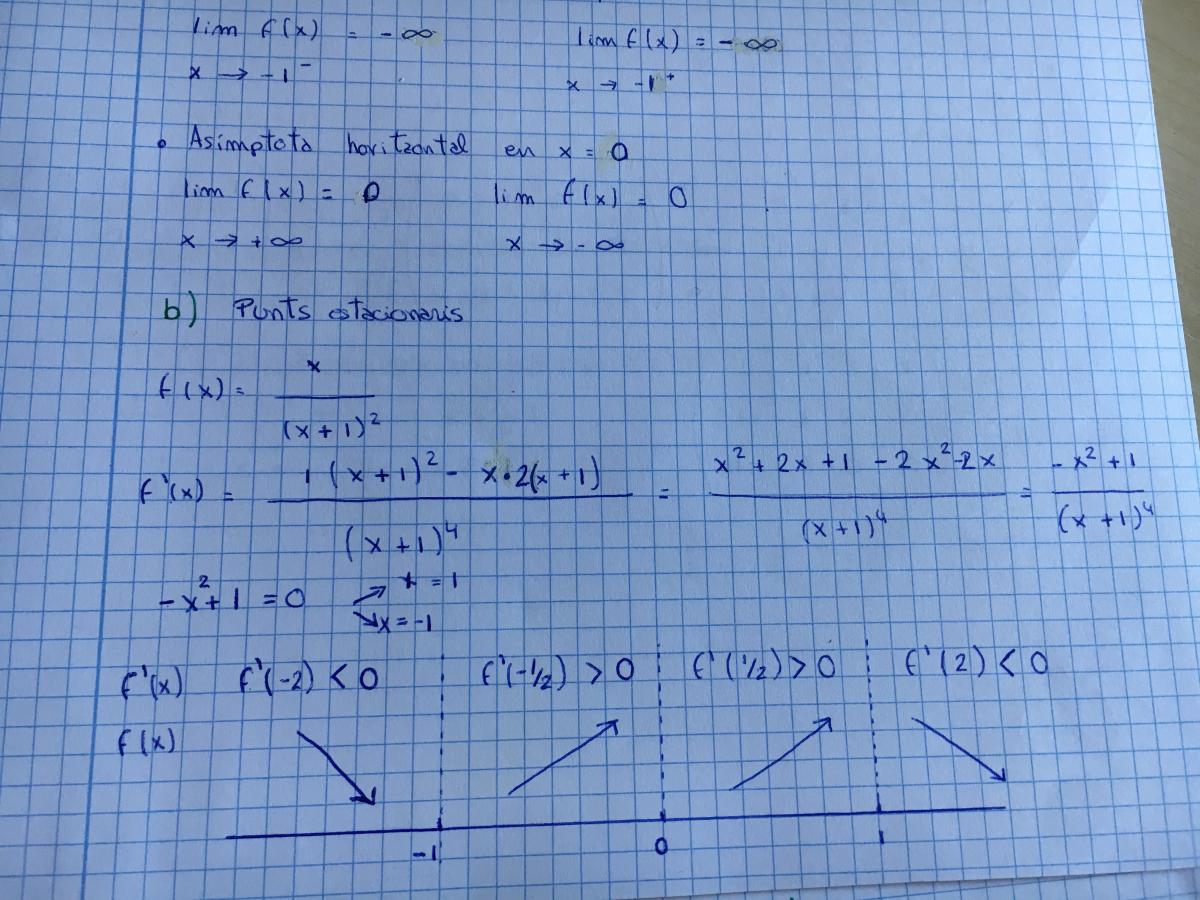 lim f(x) = -∞    lim f(x) = -∞
x → -1⁻    x → -1⁺
• Asímptota horitzontal en x = 0
lim f(x) = 0    lim f(x) = 0
x → +∞    x → -∞
b) Punts estacionaris
f(x) = x / (x+1)²
f'(x) = (1(x+1)² - x·2(x+1)) / (x+1)⁴ = (x² + 2x + 1 - 2x² - 2x) / (x+1)⁴ = (-x² + 1) / (x+1)⁴
-x² + 1 = 0 ↗ x = 1 ↘ x = -1
f'(x)  f'(-2) < 0  f'(-1/2) > 0  f'(1/2) > 0  f'(2) < 0
f(x) ↘ ↗ ↗ ↘
-1  0  1